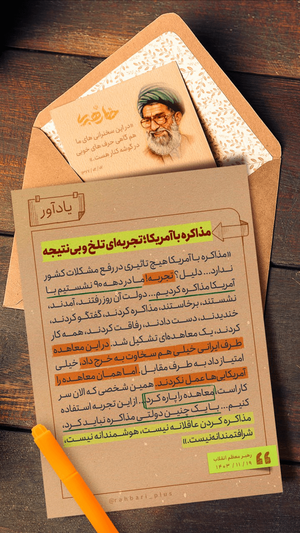 خاطره
«در این سخنرانی‌های ما
هم گاهی حرف‌های خوبی
در گوشه کنار هست.»
یادآور
مذاکره با آمریکا؛ تجربه‌ای تلخ و بی‌نتیجه
«مذاکره با آمریکا هیچ تاثیری در رفع مشکلات کشور
ندارد... دلیل؟ تجربه! ما در دهه ۹۰ نشستیم با
آمریکا مذاکره کردیم... دولت آن روز رفتند، آمدند،
نشستند، برخاستند، مذاکره کردند، گفتگو کردند،
خندیدند، دست دادند، رفاقت کردند، همه کار
کردند، یک معاهده‌ای تشکیل شد. در این معاهده
طرف ایرانی خیلی هم سخاوت به خرج داد، خیلی
امتیاز داد به طرف مقابل. اما همان معاهده را
آمریکایی‌ها عمل نکردند. همین شخصی که الان سر
کار است، معاهده را پاره کرد... از این تجربه استفاده
کنیم... با یک چنین دولتی مذاکره نباید کرد،
مذاکره کردن عاقلانه نیست، هوشمندانه نیست،
شرافتمندانه نیست.»
رهبر معظم انقلاب
۱۴۰۳ / ۱۱ / ۱۹
@rahbari_plus